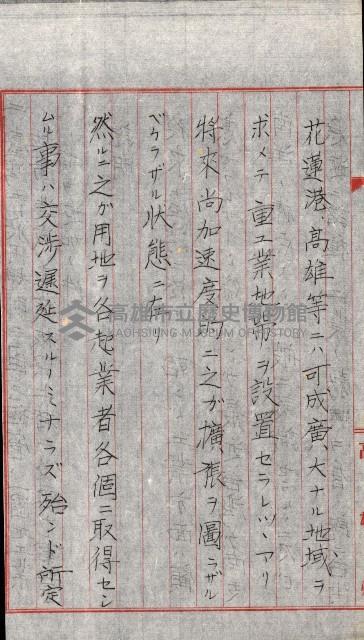 花蓮港、高雄等ニハ可成廣大ナル地域ヲ
求メテ重工業地帶ヲ設置セラレツヽアリ
將來尚加速度的ニ之ガ擴張ヲ圖ラザル
ベカラザル狀態ニ在リ
然ルニ之ガ用地ヲ各起業者各個ニ取得セシ
ムル事ハ交渉遲延スルノミナラズ殆ンド所定
高雄市立歷史博物館
KAOHSIUNG MUSEUM OF HISTORY